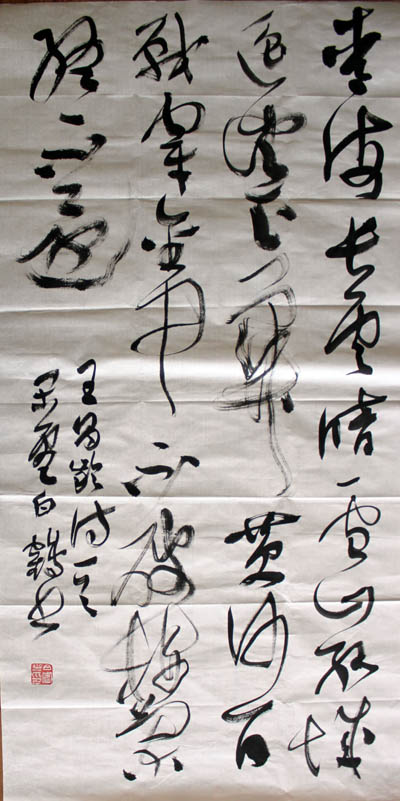 青海长云暗雪山孤城
遥望玉门关黄沙百
战穿金甲不破楼兰
终不还
王昌龄诗一首
白鹤书